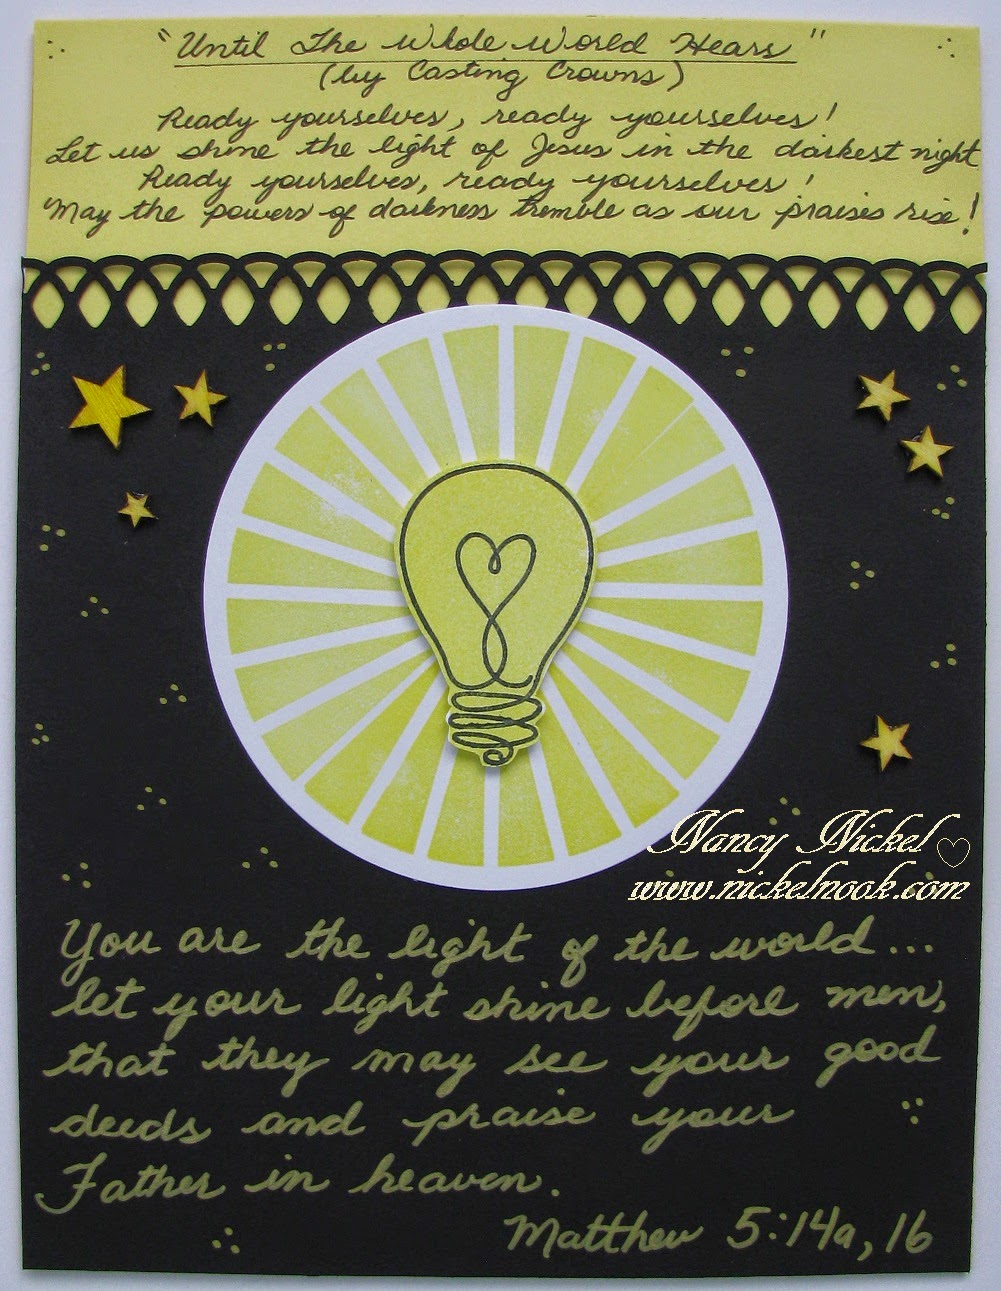 "Until The Whole World Hears"
(by Casting Crowns)
Ready yourselves, ready yourselves!
Let us shine the light of Jesus in the darkest night
Ready yourselves, ready yourselves!
May the powers of darkness tremble as our praises rise!
Nancy Nickel
www.nickelnook.com
You are the light of the world...
let your light shine before men,
that they may see your good
deeds and praise your
Father in heaven.
Matthew 5:14a, 16